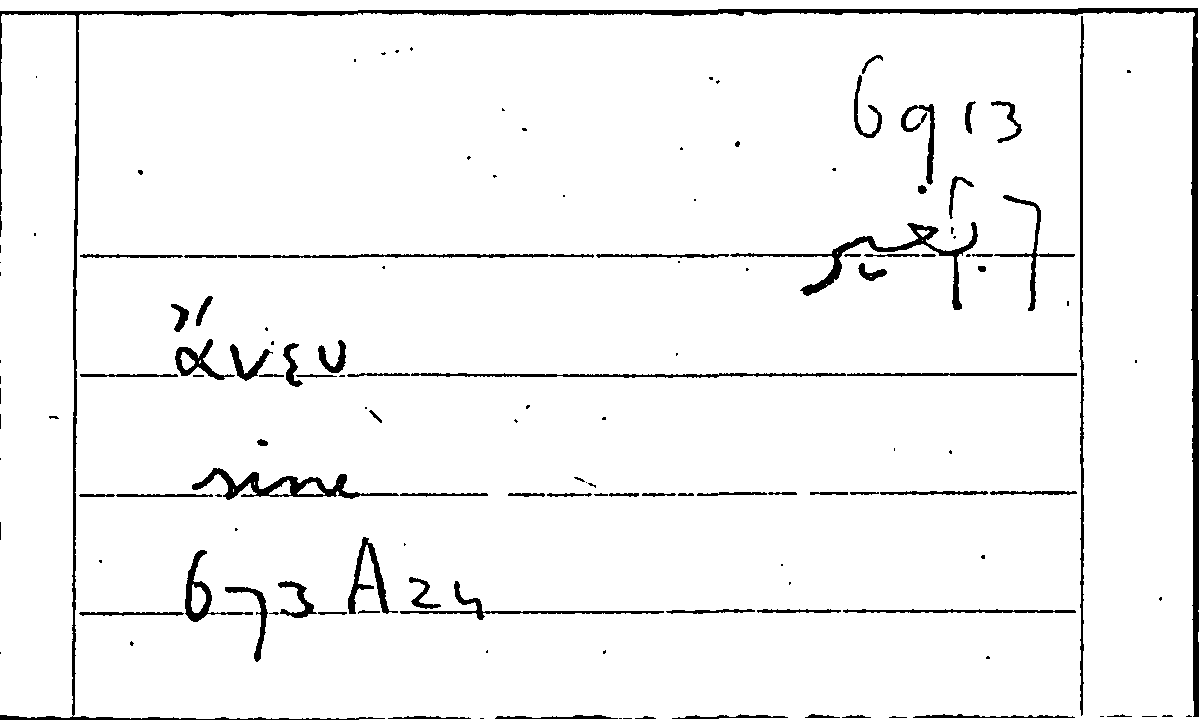 6913
ἄνευ
sine
673 A 24